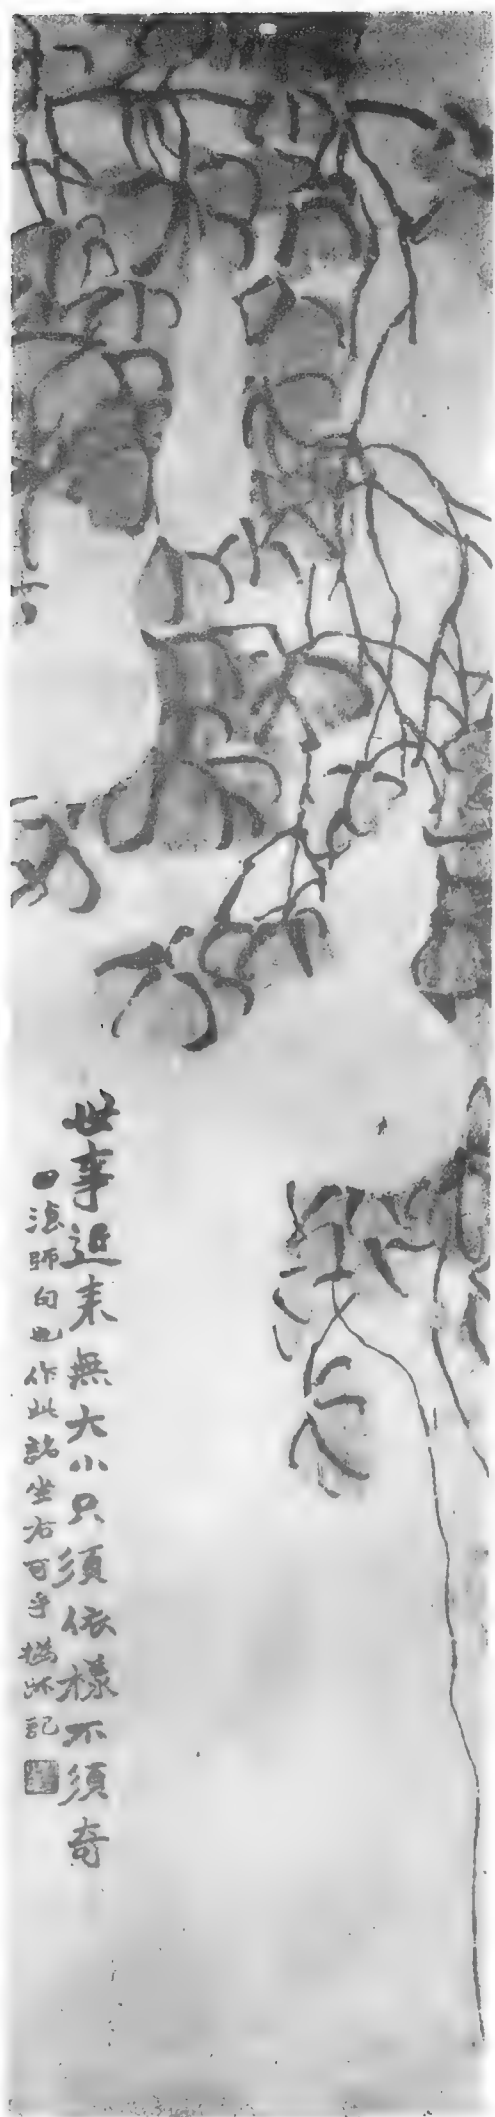 世事近来無大小只須依樣不須奇
師句也作此銘坐右可乎
記